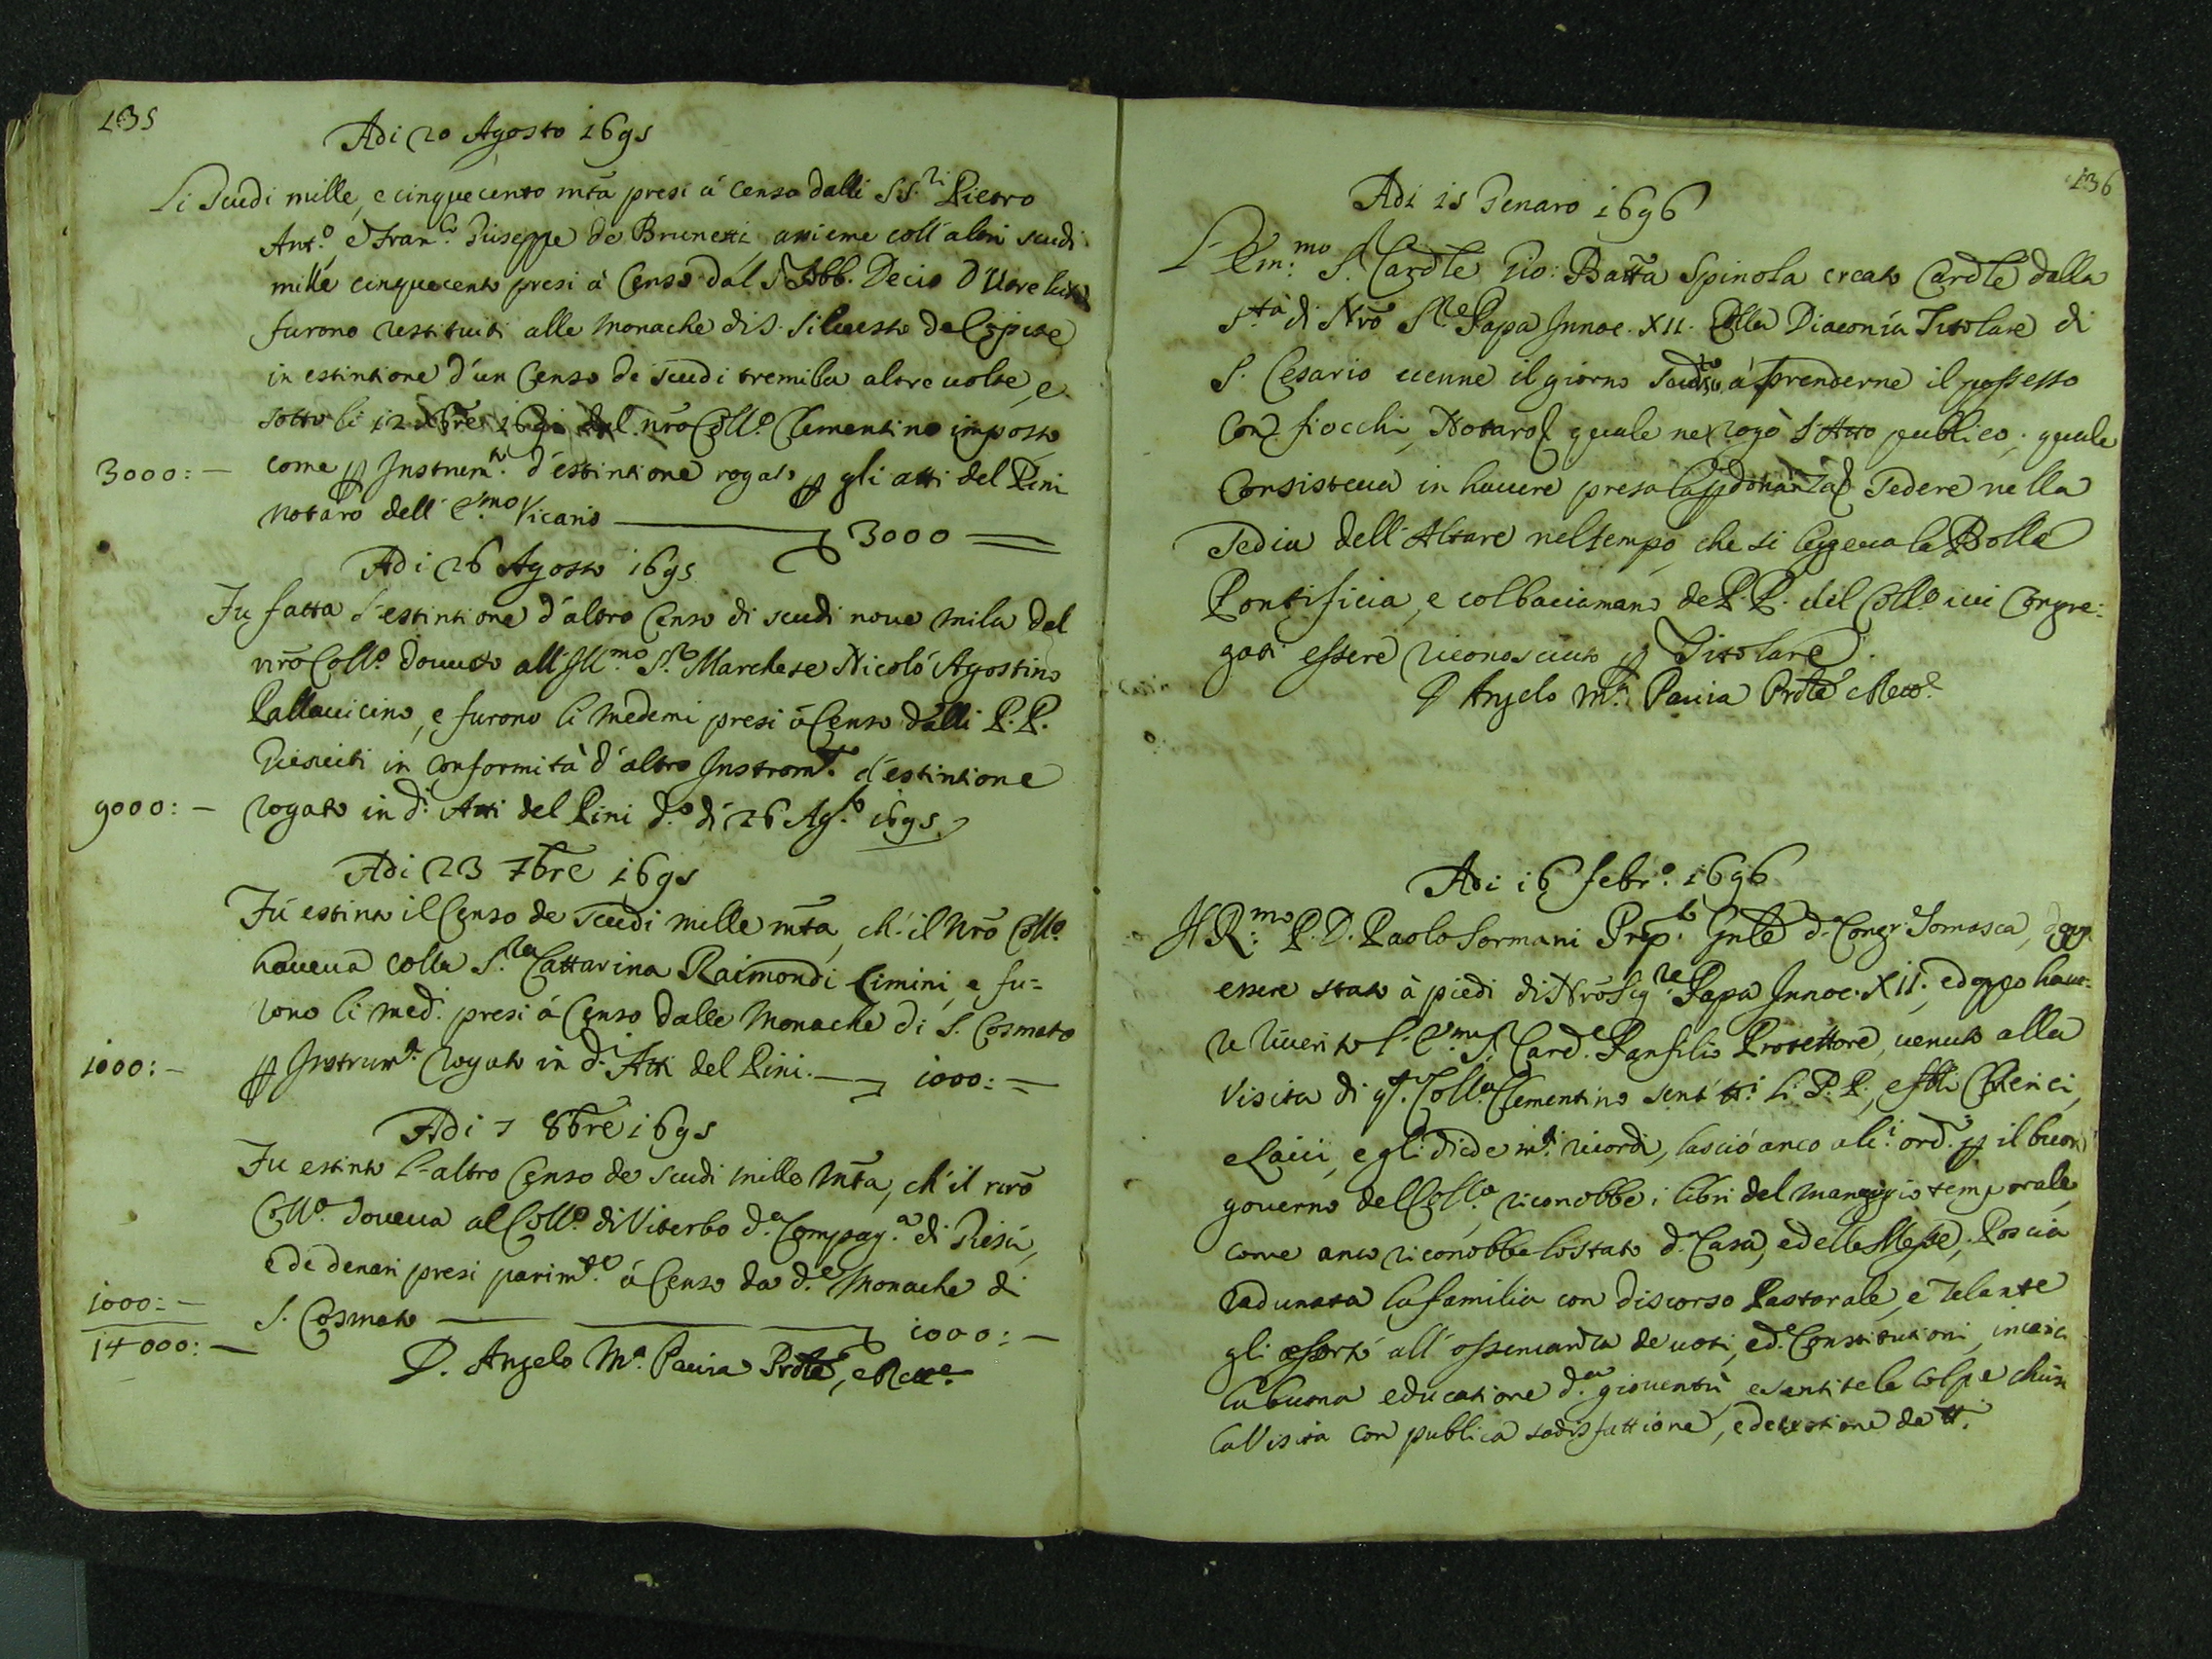 135
Adi 20 Agosto 1695
Li Scudi mille, e cinquecento mta presi à censo dalli SS.ri Pietro
Ant.o, e Fran.co Giuseppe de Brunetti assieme coll'altri scudi
mille cinquecento presi à Censo dal S. Abb. Decio
furono restituiti alle Monache di S. Silvestro de Capite
in estintione d'un Censo de scudi tremila altre volte, e
sotto li 12 dal nro Coll.o Clementino imposto
3000:— come p Instrum.to d'estintione rogato p gli atti del Pini
Notaro dell' E.mo Vicario — 3000 =
Adi 26 Agosto 1695
Fu fatta l'estintione d'altro Censo di scudi nove mila dal
nro Coll.o dovuto all'Ill.mo S.r Marchese Nicolò Agostino
Pallavicino, e furono li medemi presi à Censo dalli P.P.
Giesuiti in conformità d'altro Instrom.to d'estintione
9000:— rogato in d.i Atti del Pini d.o dì 26 Ag.to 1695
Adi 23 7bre 1695
Fù estinto il Censo de Scudi mille mta, ch'il Nro Coll.o
haveva colla S.ra Cattarina Raimondi Cimini, e fu=
rono li med.i presi à Censo dalle Monache di S. Cosmato
1000:— p Instrum.to rogato in d.i Atti del Pini. — 1000:=
Adi 7 8bre 1695
Fu estinto l'altro Censo de scudi mille mta, ch'il nro
Coll.o doveva al Coll.o di Viterbo d.a Compag.a di Giesù,
e de denari presi parim.te à Censo da d.e Monache di
1000:— S. Cosmato — 1000:—
14000:—
D. Angelo M.a Pavia Prōle, e Rett.e
136
Adi 15 Genaro 1696
L'Em.mo S. Cardle Gio: Batta Spinola creato Cardle dalla
S.tà di Nro S.re Papa Innoc. XII. Colla Diaconia Titolare di
S. Cesario venne il giorno à prenderne il possesso
con fiocchi, Notaro quale ne rogò l'Atto publico, quale
consisteva in havere presa sedere nella
Sedia dell'Altare nel tempo, che si leggeva la Bolla
Pontificia, e col baciamano de P.P. del Coll.o ivi Congre:
gati essere riconosciuto p Titolare.
D Angelo M.a Pavia Prōle e Rett.e
Adi 16 febr.o 1696
Il R.mo P.D. Paolo Sormani Prep.to Gnle d. Congr. Somasca, dopo
essere stato à piedi di Nro Sig.re Papa Innoc. XII. e doppo have-
re riverito l'E.mo S. Card.e Panfilio Protettore, venuto alla
Visita di q.to Coll.o Clementino sentì tti li P.P., e flli Chierici,
e Laici, e gli diede ricordi, lasciò anco alc.i ord.i p il buon
governo del Coll.o, riconobbe i libri del maneggio temporale,
come anco riconobbe lo stato d. Casa, e delle Messe. Poscia
radunata la familia con discorso Pastorale, e zelante
gli essortò all'osservanza de voti, e d. Constitutioni,
la buona educatione d.a gioventù, e sentite le colpe chiuse
la Visita con publica sodisfattione, e devotione de tti.